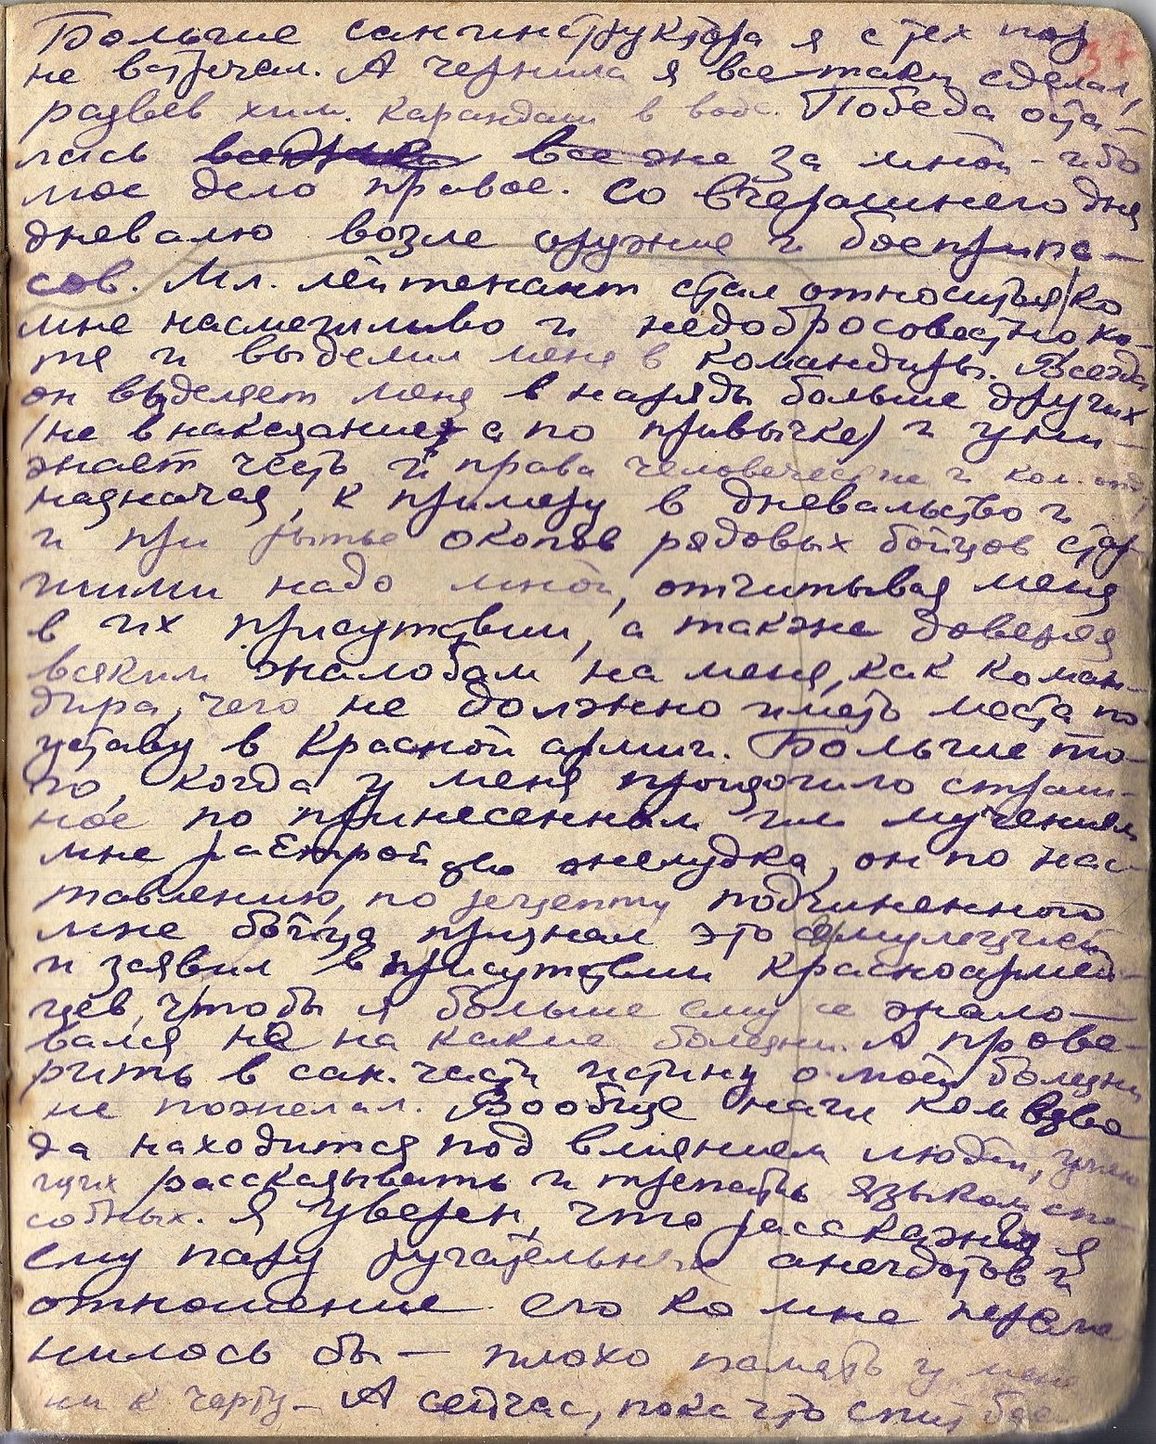 Больше санинструктора я с тех пор
не встречал. А чернила я все-таки сделал,
развев хим. карандаш в воде. Победа оста-
лась все же за мной - ибо
мое дело правое. Со вчерашнего дня
дневалю возле оружие и боеприпа-
сов. Мл. лейтенант стал относиться ко
мне насмешливо и недобросовестно хо-
тя и выделил меня в командиры. Всегда
он выделяет меня в наряды больше других
(не в наказание, а по привычке) и уни-
жает честь и права человеческие и ком. отд.,
назначая, к примеру в дневальство и
и при рытье окопов рядовых бойцов стар-
шими надо мной, отчитывая меня
в их присутствии, а также доверяя
всяким жалобам на меня, как коман-
дира, чего не должно иметь места по
уставу в Красной армии. Больше то-
го, когда у меня произошло страш-
ное по принесенным им мучениям
мне расстройство желудка, он по нас-
тавлению, по рецепту подчиненного
мне бойца признал это симуляцией
и заявил в присутствии красноармей-
цев, чтобы я больше ему не жало-
вался не на какие болезни. А прове-
рить в сан. части истину о моей болезни
не пожелал. Вообще наш комвзво-
да находится под влиянием людей, умею-
щих рассказывать и трепать языком спо-
собных. Я уверен, что расскажи я
ему пару ругательных анекдотов и
отношение его ко мне переме-
нилось бы — плохо память у меня
ни к черту - А сейчас, пока что спит